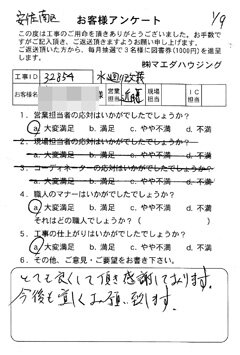 安佐南区
お客様アンケート
1/9
この度は工事のご用命を頂きありがとうございました。お手数で
すがご記入頂き、ご返送頂きますようお願い申し上げます。
ご返送頂いた方から、毎月抽選で3名様に図書券(1000円)を進呈し
ます。
㈱マエダハウジング
工事ID 32854 水廻り改装
お客様名 様 営業担当 現場担当 IC
1. 営業担当者の応対はいかがでしたでしょうか?
a.大変満足 b.満足 c.やや不満 d.不満
2. 現場担当者の応対はいかがでしたでしょうか?
a.大変満足 b.満足 c.やや不満 d.不満
3. コーディネーターの応対はいかがでしたでしょうか?
a.大変満足 b.満足 c.やや不満 d.不満
4. 職人のマナーはいかがでしたでしょうか?
a.大変満足 b.満足 c.やや不満 d.不満
それはどの職人でしょうか?( )
5. 工事の仕上がりはいかがでしたでしょうか?
a.大変満足 b.満足 c.やや不満 d.不満
6. その他、ご意見・ご要望をお書き下さい。
とても良くして頂き感謝しております。
今後も宜しくお願い致します。